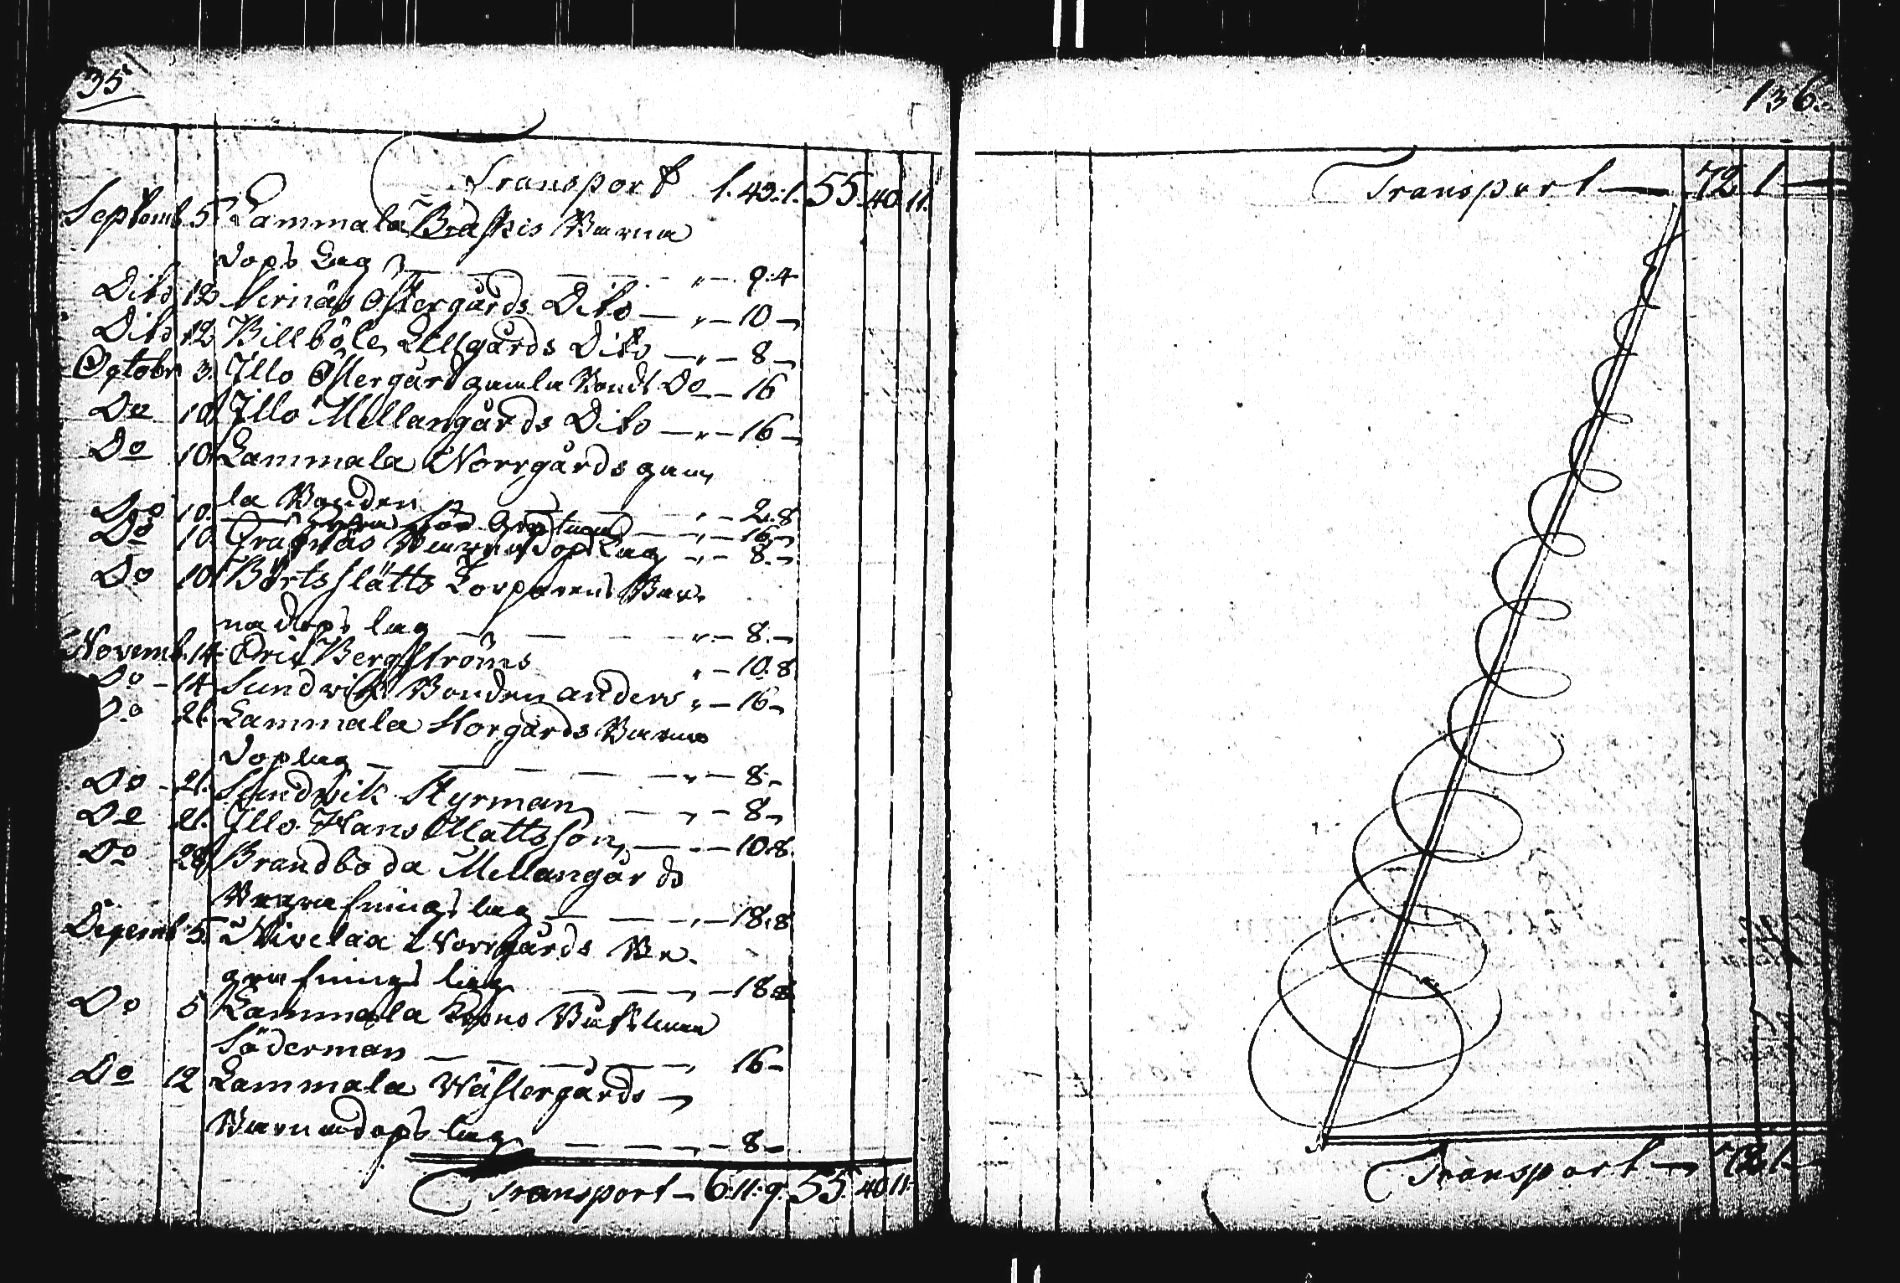 35
Transport 1. 43. 1. 55. 40. 11.
Septemb. 5. Lammala Barna
dops Lag — — — „ — 9. 4
Dito 12 Östergårds Dito — „ — 10 —
Dito 12 Billböle Lillgårds Dito — „ — 8 —
Octobr 3. Illo Östergård gamla Do — 16
Do 10 Illo Mellangårds Dito — „ — 16 —
Do 10 Lammala Norrgårds gam„
la Bonden — „ — 2. 8
Do 10. — „ — 16 —
Do 10 Barnedops Lag „ — 8. —
Do 10 Bortsslätts Torparens Bar„
nadops lag — — „ — 8. —
Novemb. 14 Eric Bergströms „ — 10. 8
Do — 14 Sundvik Bonden anders „ — 16 —
Do 21. Lammala Storgårds Barna
doplag — — — „ — 8 —
Do — 21. Sundvik Styrman — „ — 8 —
Do 21. Illo Hans Mattsson, — „ — 10. 8.
Do 28 Brandboda Mellangårds
Begrafnings lag — — „ — 18. 8
Decemb. 5. Norrgårds Be„
grafnings lag — — „ — 18. 8
Do 5 Lammala
Söderman — — „ 16 —
Do 12 Lammala Wästergårds —
Barnadops lag — — „ — 8 —
Transport — 6. 11. 9. 55. 40 11.
136.
Transport — 72 1 —
Transport — 72 1 —